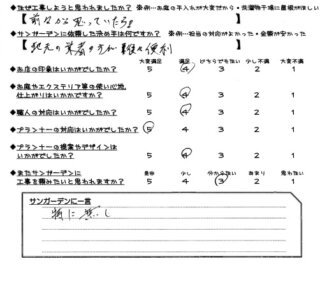 ◆なぜ工事しようと思われましたか？ 条例…お庭の手入れが大変だから・洗濯物干場に屋根がほしい
【前々から思っていたから】
◆サンガーデンに依頼した決め手は何ですか？ 条例…担当の対応がよかった・金額が安かった
【 】
大変満足 満足 どちらでもない 少し不満 大変不満
◆お店の印象はいかがでしたか？ 5 ④ 3 2 1
◆お庭やエクステリア等の使い心地、
仕上がりはいかがですか？ 5 ④ 3 2 1
◆職人の対応はいかがでしたか？ 5 ④ 3 2 1
◆プランナーの対応はいかがでしたか？ ⑤ 4 3 2 1
◆プランナーの提案やデザインは
いかがでしたか？ 5 ④ 3 2 1
◆またサンガーデンに 是非 少し 分からない あまり 思わない
工事を頼みたいと思われますか？ 5 4 ③ 2 1
サンガーデンに一言
特に無し